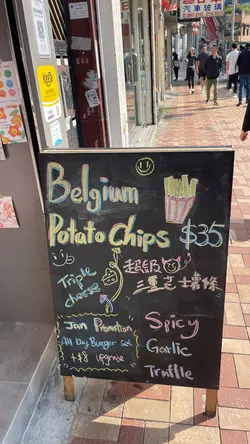 汽車玻璃
Belgium
Potato Chips $35
超級
Triple
cheese
三重芝士薯條
Jan Promotion
All Day Burger Set
+$8 upgrade
Spicy
Garlic
Truffle